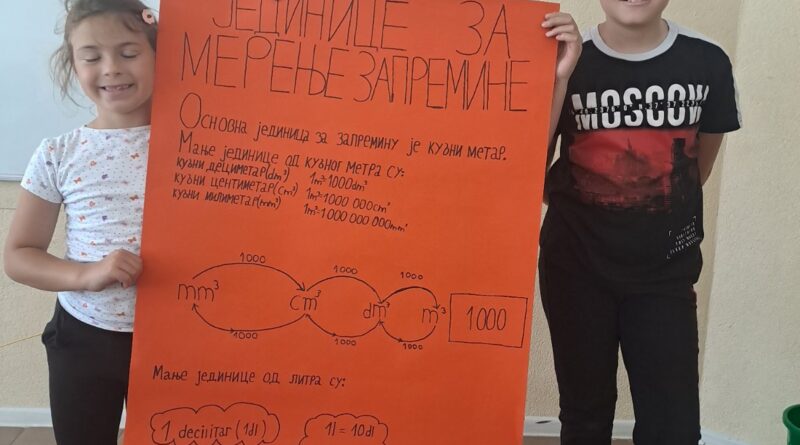 ЈЕДИНИЦЕ ЗА
МЕРЕЊЕ ЗАПРЕМИНЕ
ОСНОВНА ЈЕДИНИЦА ЗА ЗАПРЕМИНУ ЈЕ КУБНИ МЕТАР.
МАЊЕ ЈЕДИНИЦЕ ОД КУБНОГ МЕТРА СУ:
КУБНИ ДЕЦИМЕТАР(dm³) 1m³=1000dm³
КУБНИ ЦЕНТИМЕТАР(cm³) 1m³=1000 000cm³
КУБНИ МИЛИМЕТАР(mm³) 1m³=1000 000 000mm³
1000 1000 1000
mm³ cm³ dm³ m³ 1000
1000 1000 1000
МАЊЕ ЈЕДИНИЦЕ ОД ЛИТРА СУ:
1 decilitar (1dl) 1l = 10dl
MOSCOW